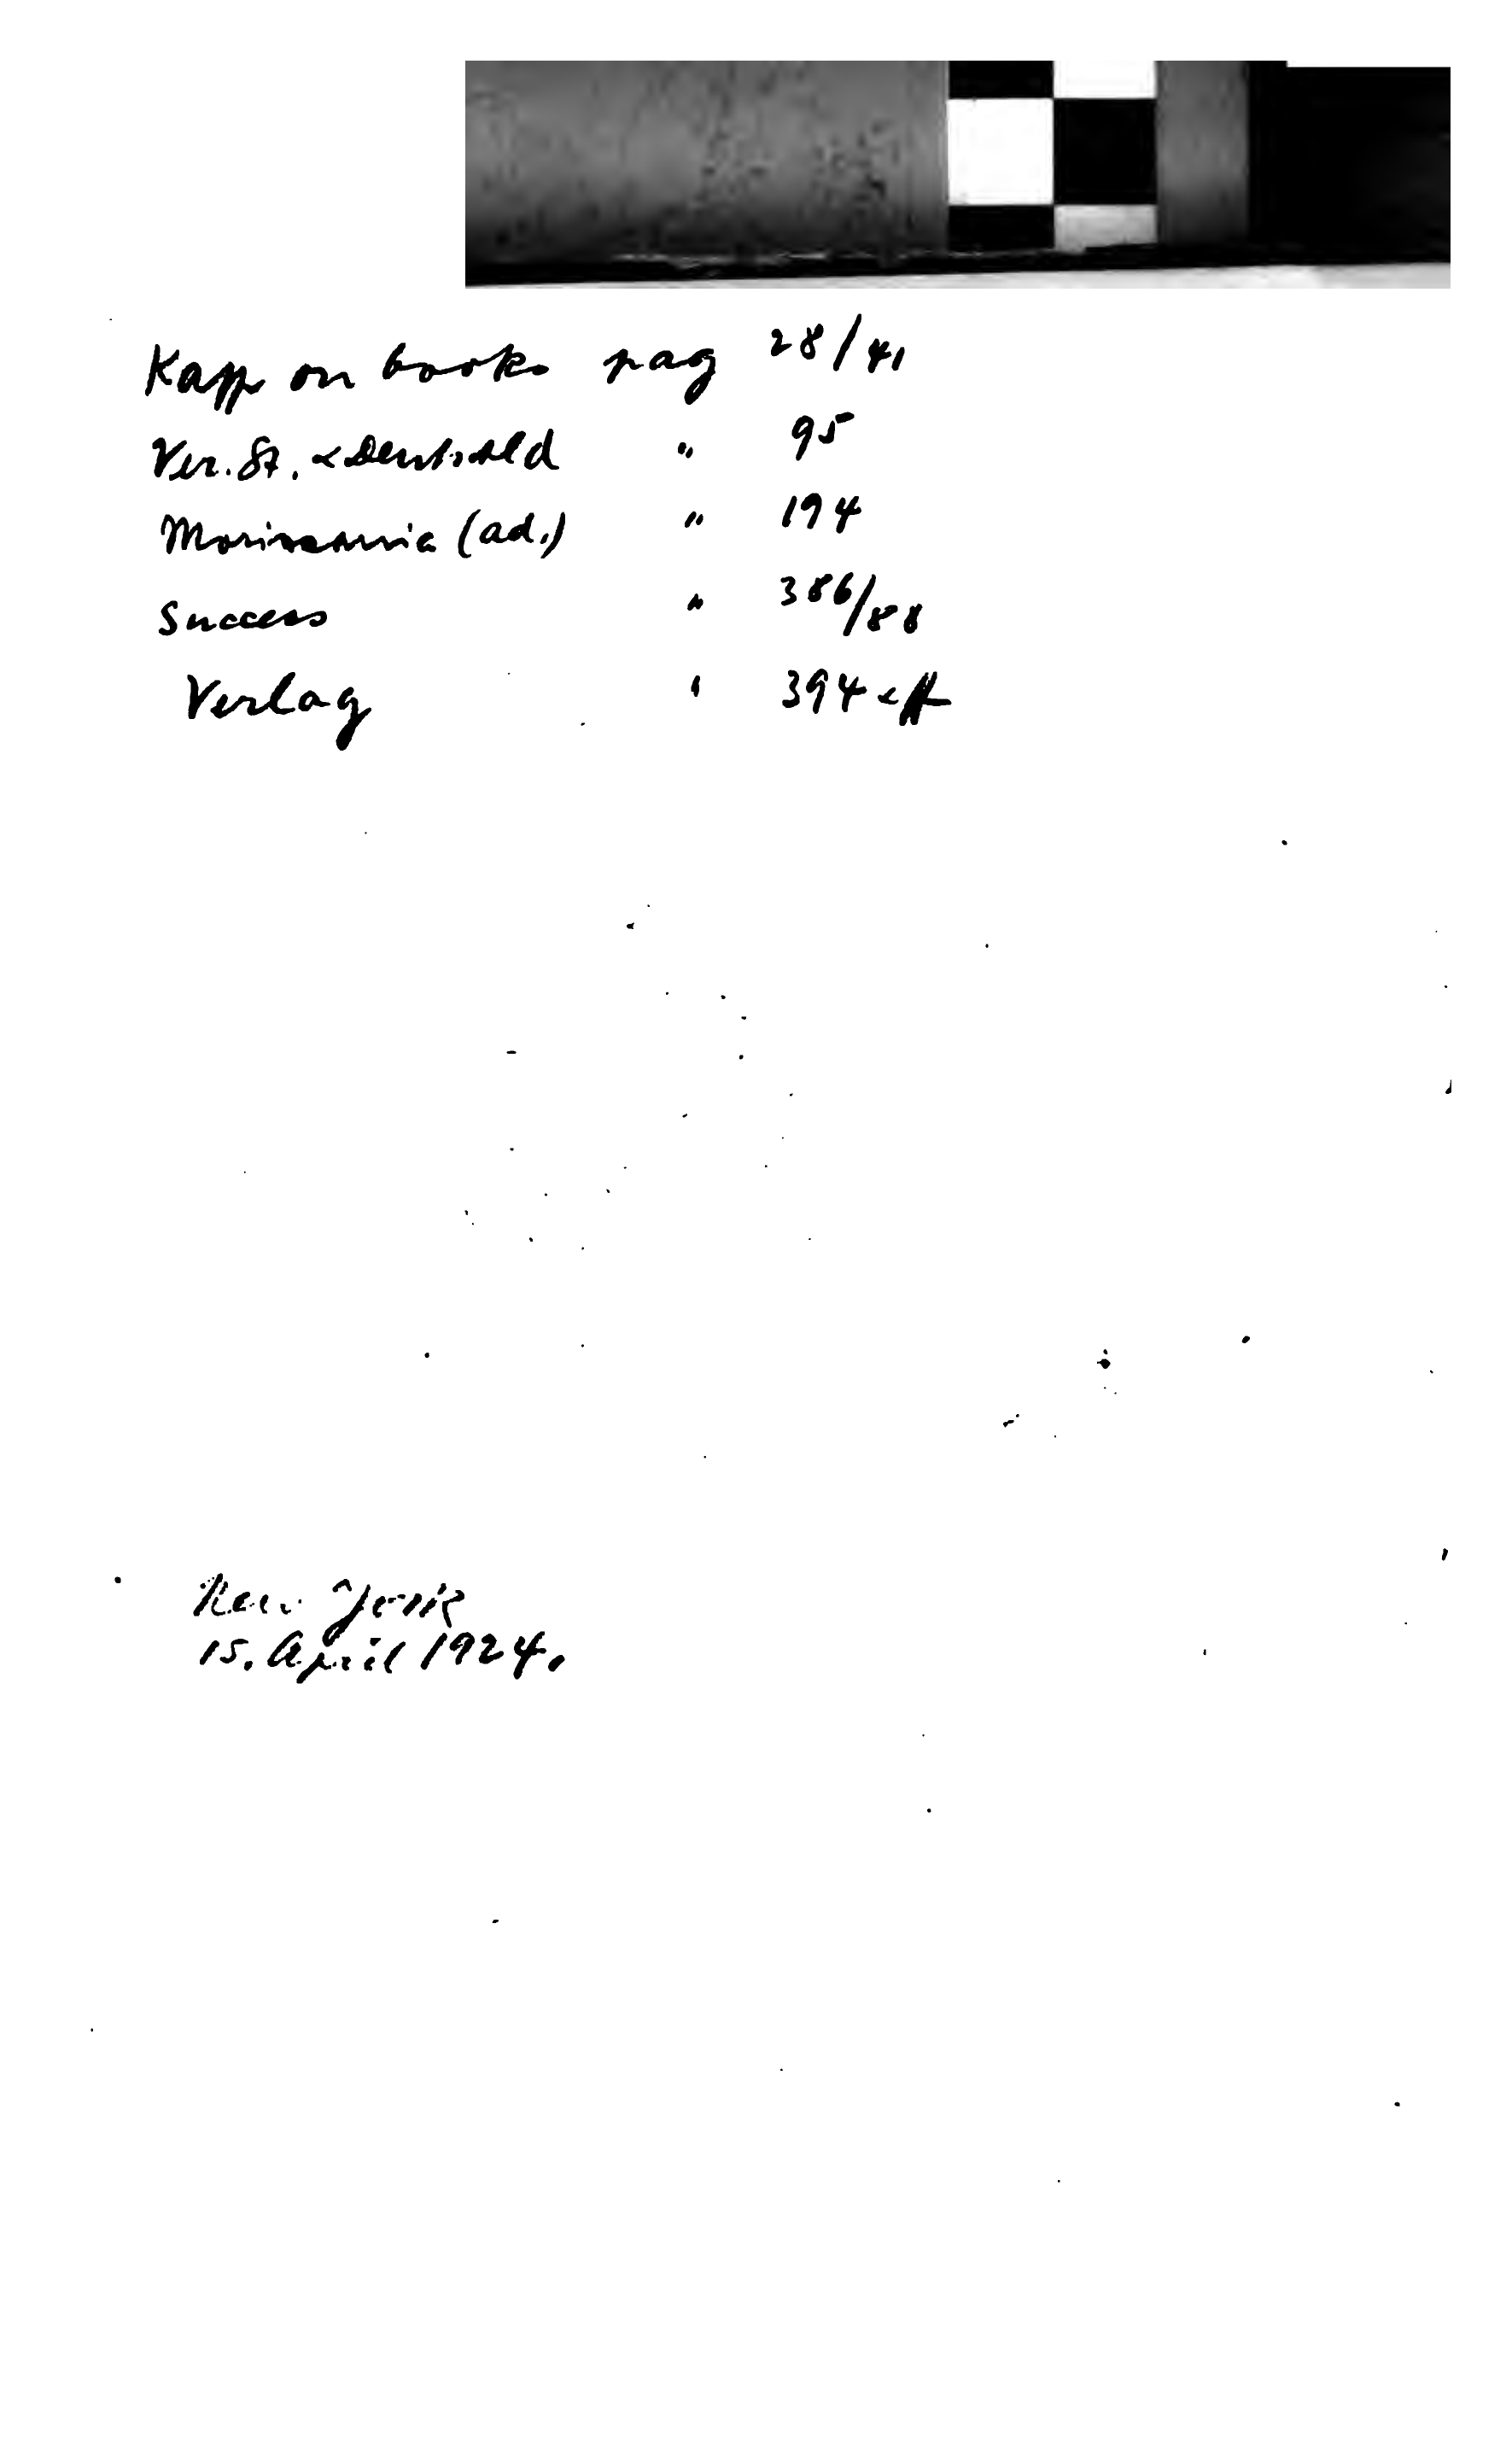 Kapp on books pag 28/41
Ver. St. & Deutschld " 95
Morrisania (ad.) " 194
Success " 386/88
Verlag " 394 & ff
New York
15. April 1924.